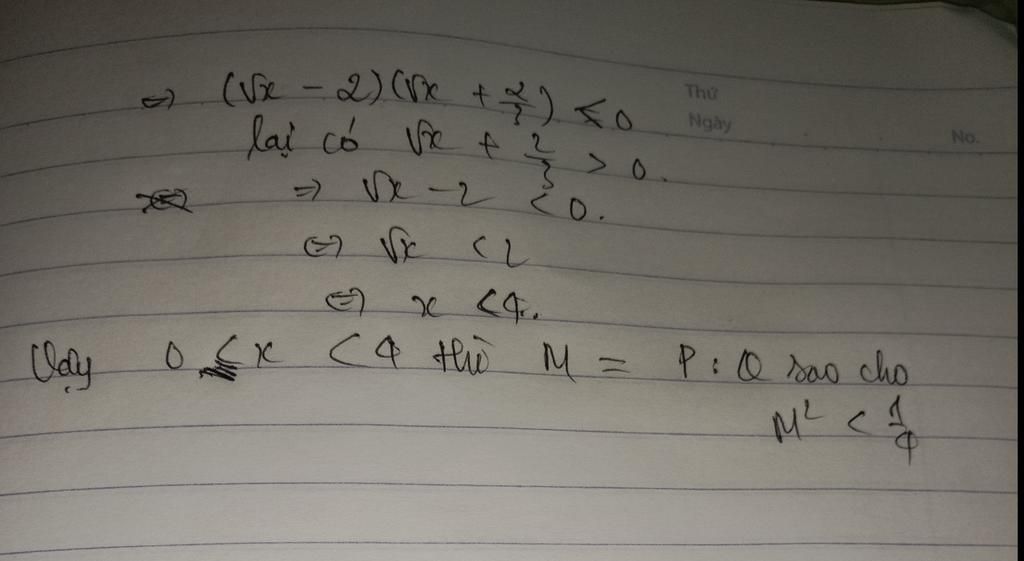 ⇔ (√x - 2)(√x + 2/3) ≤ 0
Thứ
Ngày
No.
lại có √x + 2/3 > 0.
⇒ √x - 2 < 0.
⇔ √x < 2
⇔ x < 4.
Vậy 0 ≤ x < 4 thì M = P : Q sao cho
M² < 1/4